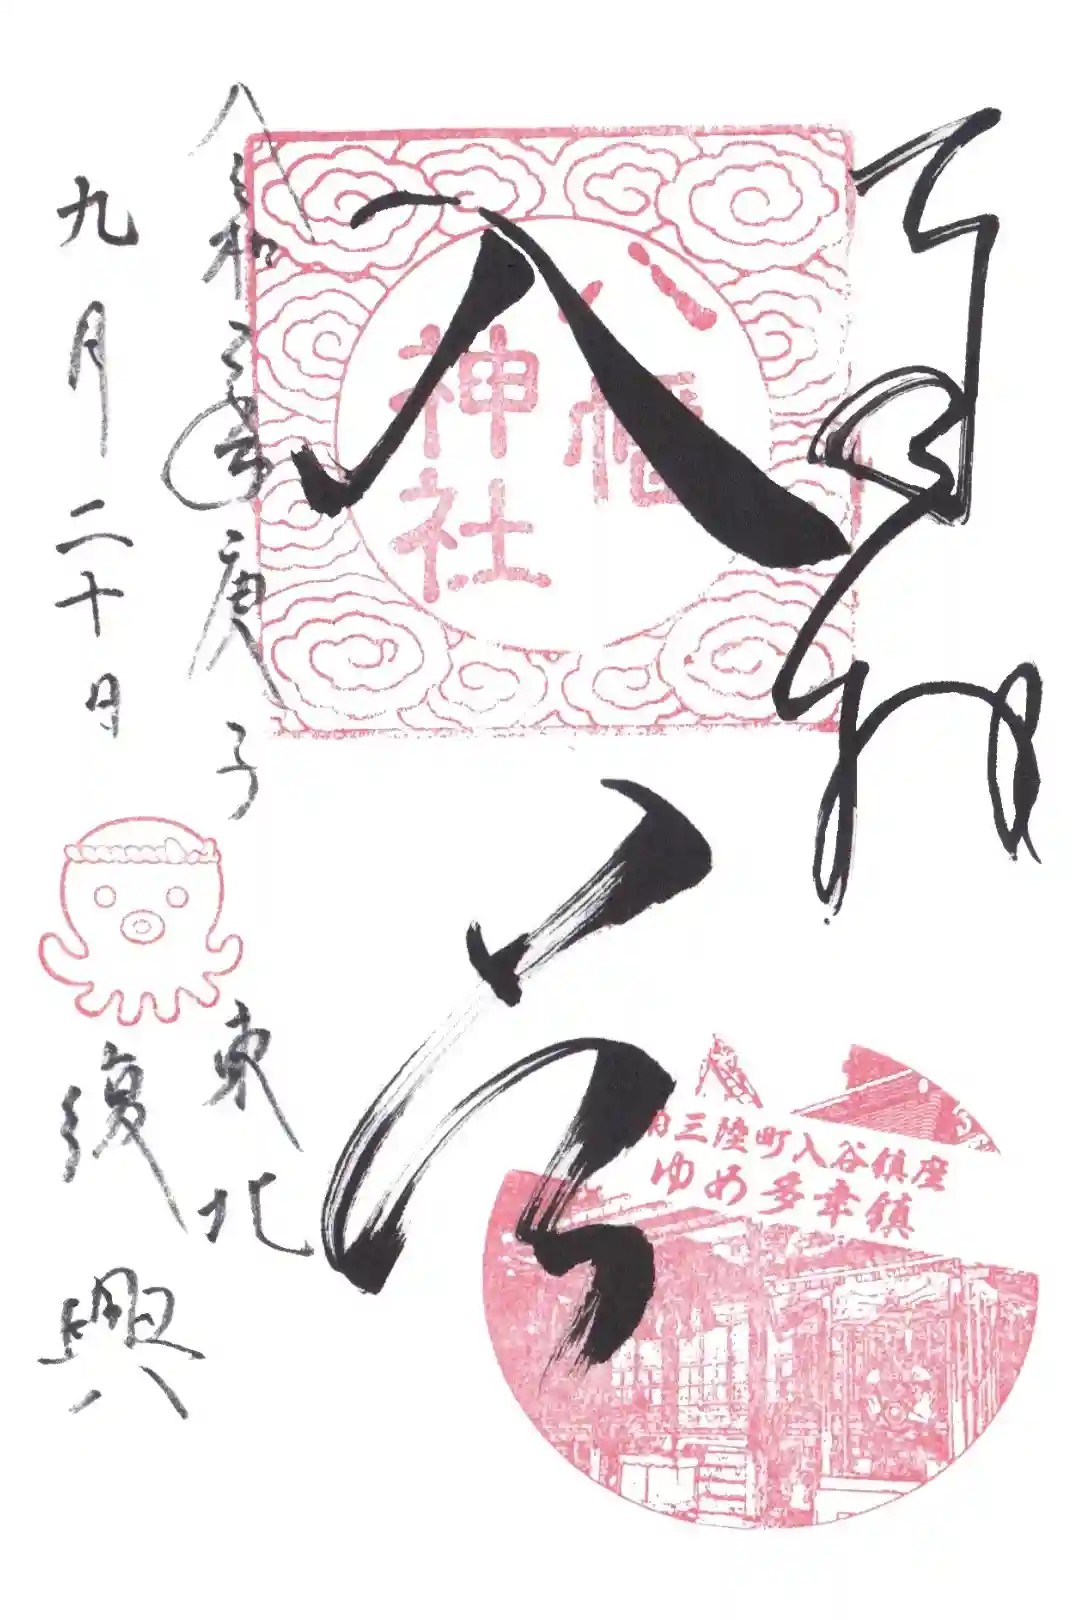 八
八幡
神社
南三陸町入谷鎮座
ゆめ多幸鎮
令和二年庚子
東北
九月二十日
復興